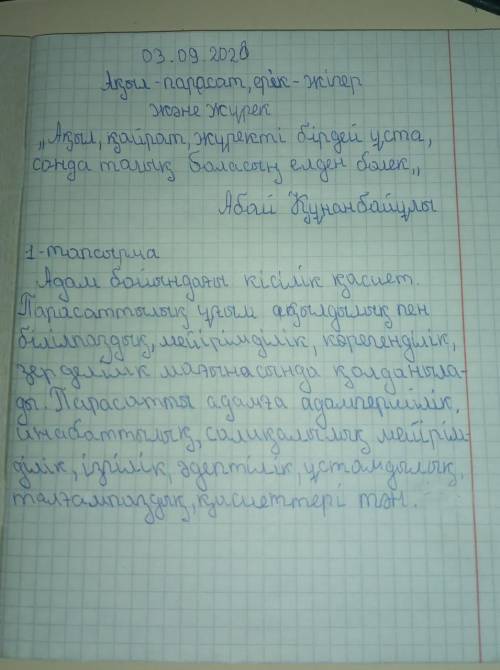 03.09.2020
Ақыл-парасат, ерік-жігер
және жүрек
„Ақыл, қайрат, жүректі бірдей ұста,
сонда талық боласың елден бөлек„
Абай Құнанбайұлы
1-тапсырма
Адам бойындағы кісілік қасиет.
Парасаттылық ұғым ақылдылық пен
білімпаздық, мейірімділік, көрегенділік,
зерделілік мағынасында қолданыла-
ды. Парасатты адамға адамгершілік,
инабаттылық, салиқалылық мейірім-
ділік, ізгілік, әдептілік, ұстамдылық,
талғампаздық, қасиеттері тән.